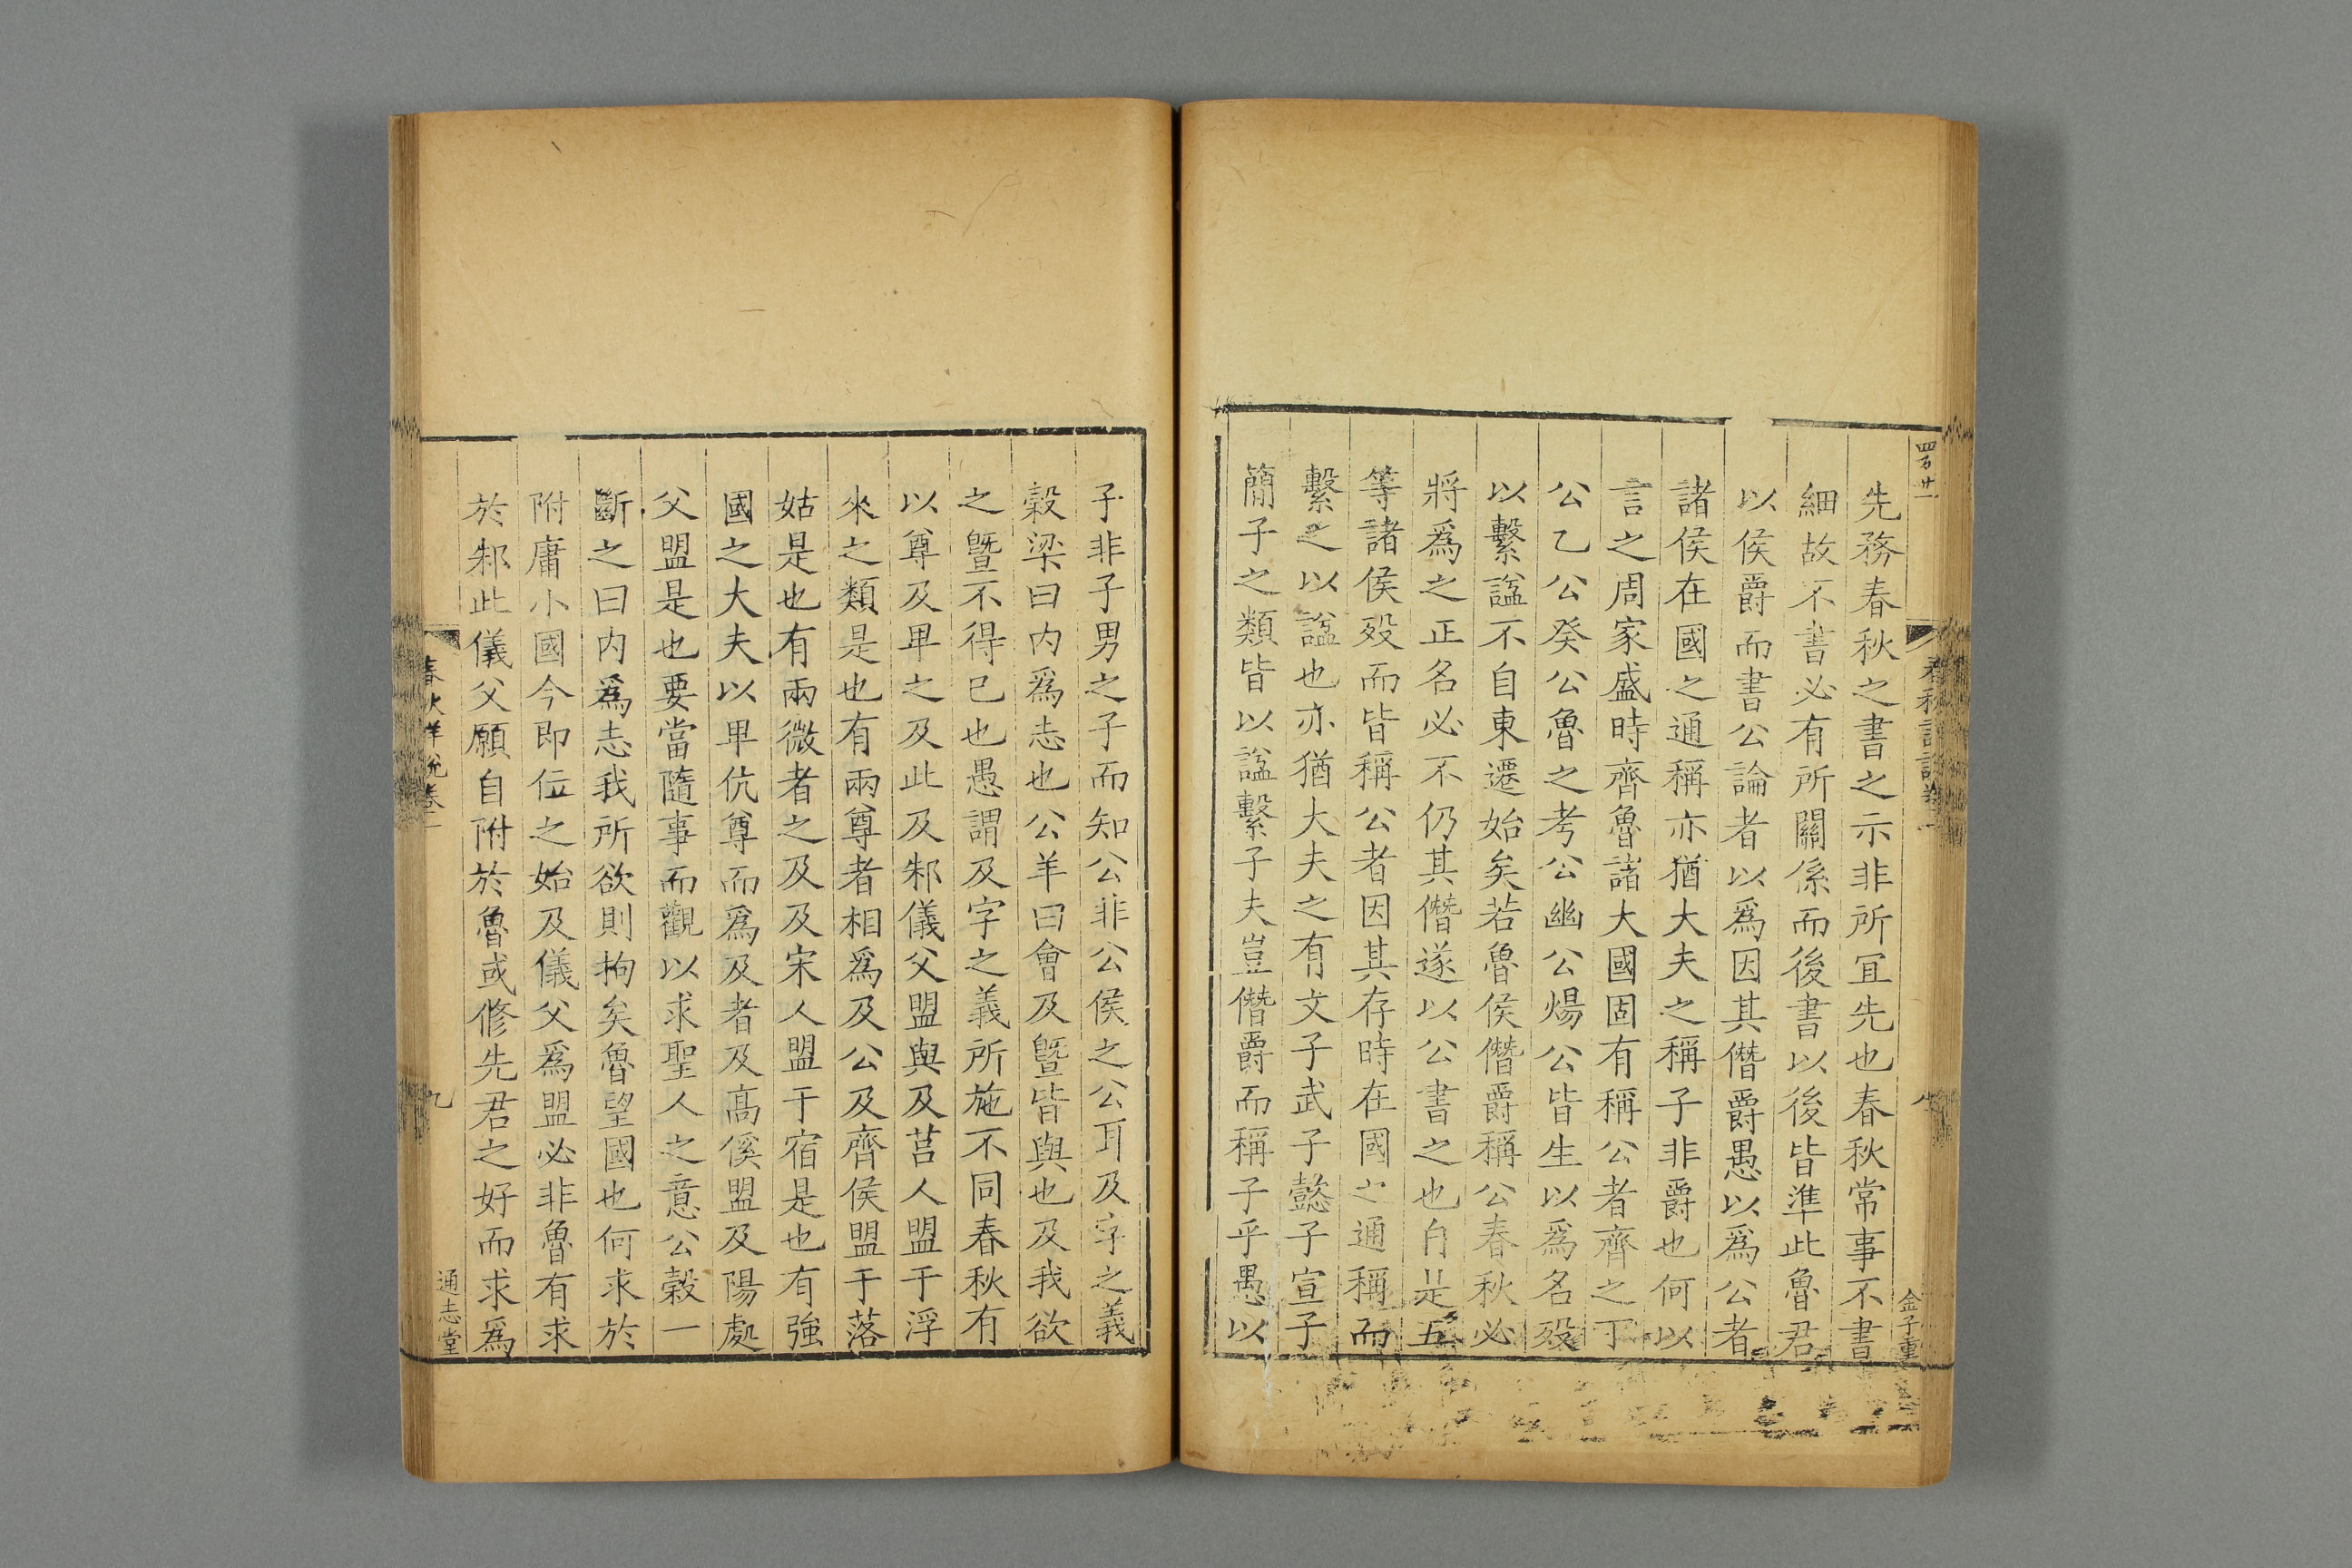 四百廿一
春秋詳說卷一
八
金子重
先務春秋之書之示非所宜先也春秋常事不書
細故不書必有所關係而後書以後皆準此魯君
以侯爵而書公論者以為因其僭爵愚以為公者
諸侯在國之通稱亦猶大夫之稱子非爵也何以
言之周家盛時齊魯諸大國固有稱公者齊之丁
公乙公癸公魯之考公幽公煬公皆生以為名歿
以繫諡不自東遷始矣若魯侯僭爵稱公春秋必
將為之正名必不仍其僭遂以公書之也自是五
等諸侯歿而皆稱公者因其存時在國之通稱而
繫之以諡也亦猶大夫之有文子武子懿子宣子
簡子之類皆以諡繫子夫豈僭爵而稱子乎愚以
子非子男之子而知公非公侯之公耳及字之義
穀梁曰内為志也公羊曰會及曁皆與也及我欲
之曁不得已也愚謂及字之義所施不同春秋有
以尊及卑之及此及邾儀父盟與及莒人盟于浮
來之類是也有兩尊者相為及公及齊侯盟于落
姑是也有兩微者之及及宋人盟于宿是也有強
國之大夫以卑伉尊而為及者及高傒盟及陽處
父盟是也要當隨事而觀以求聖人之意公穀一
斷之曰内為志我所欲則拘矣魯望國也何求於
附庸小國今即位之始及儀父為盟必非魯有求
於邾此儀父願自附於魯或修先君之好而求為
春秋詳說卷一
九
通志堂